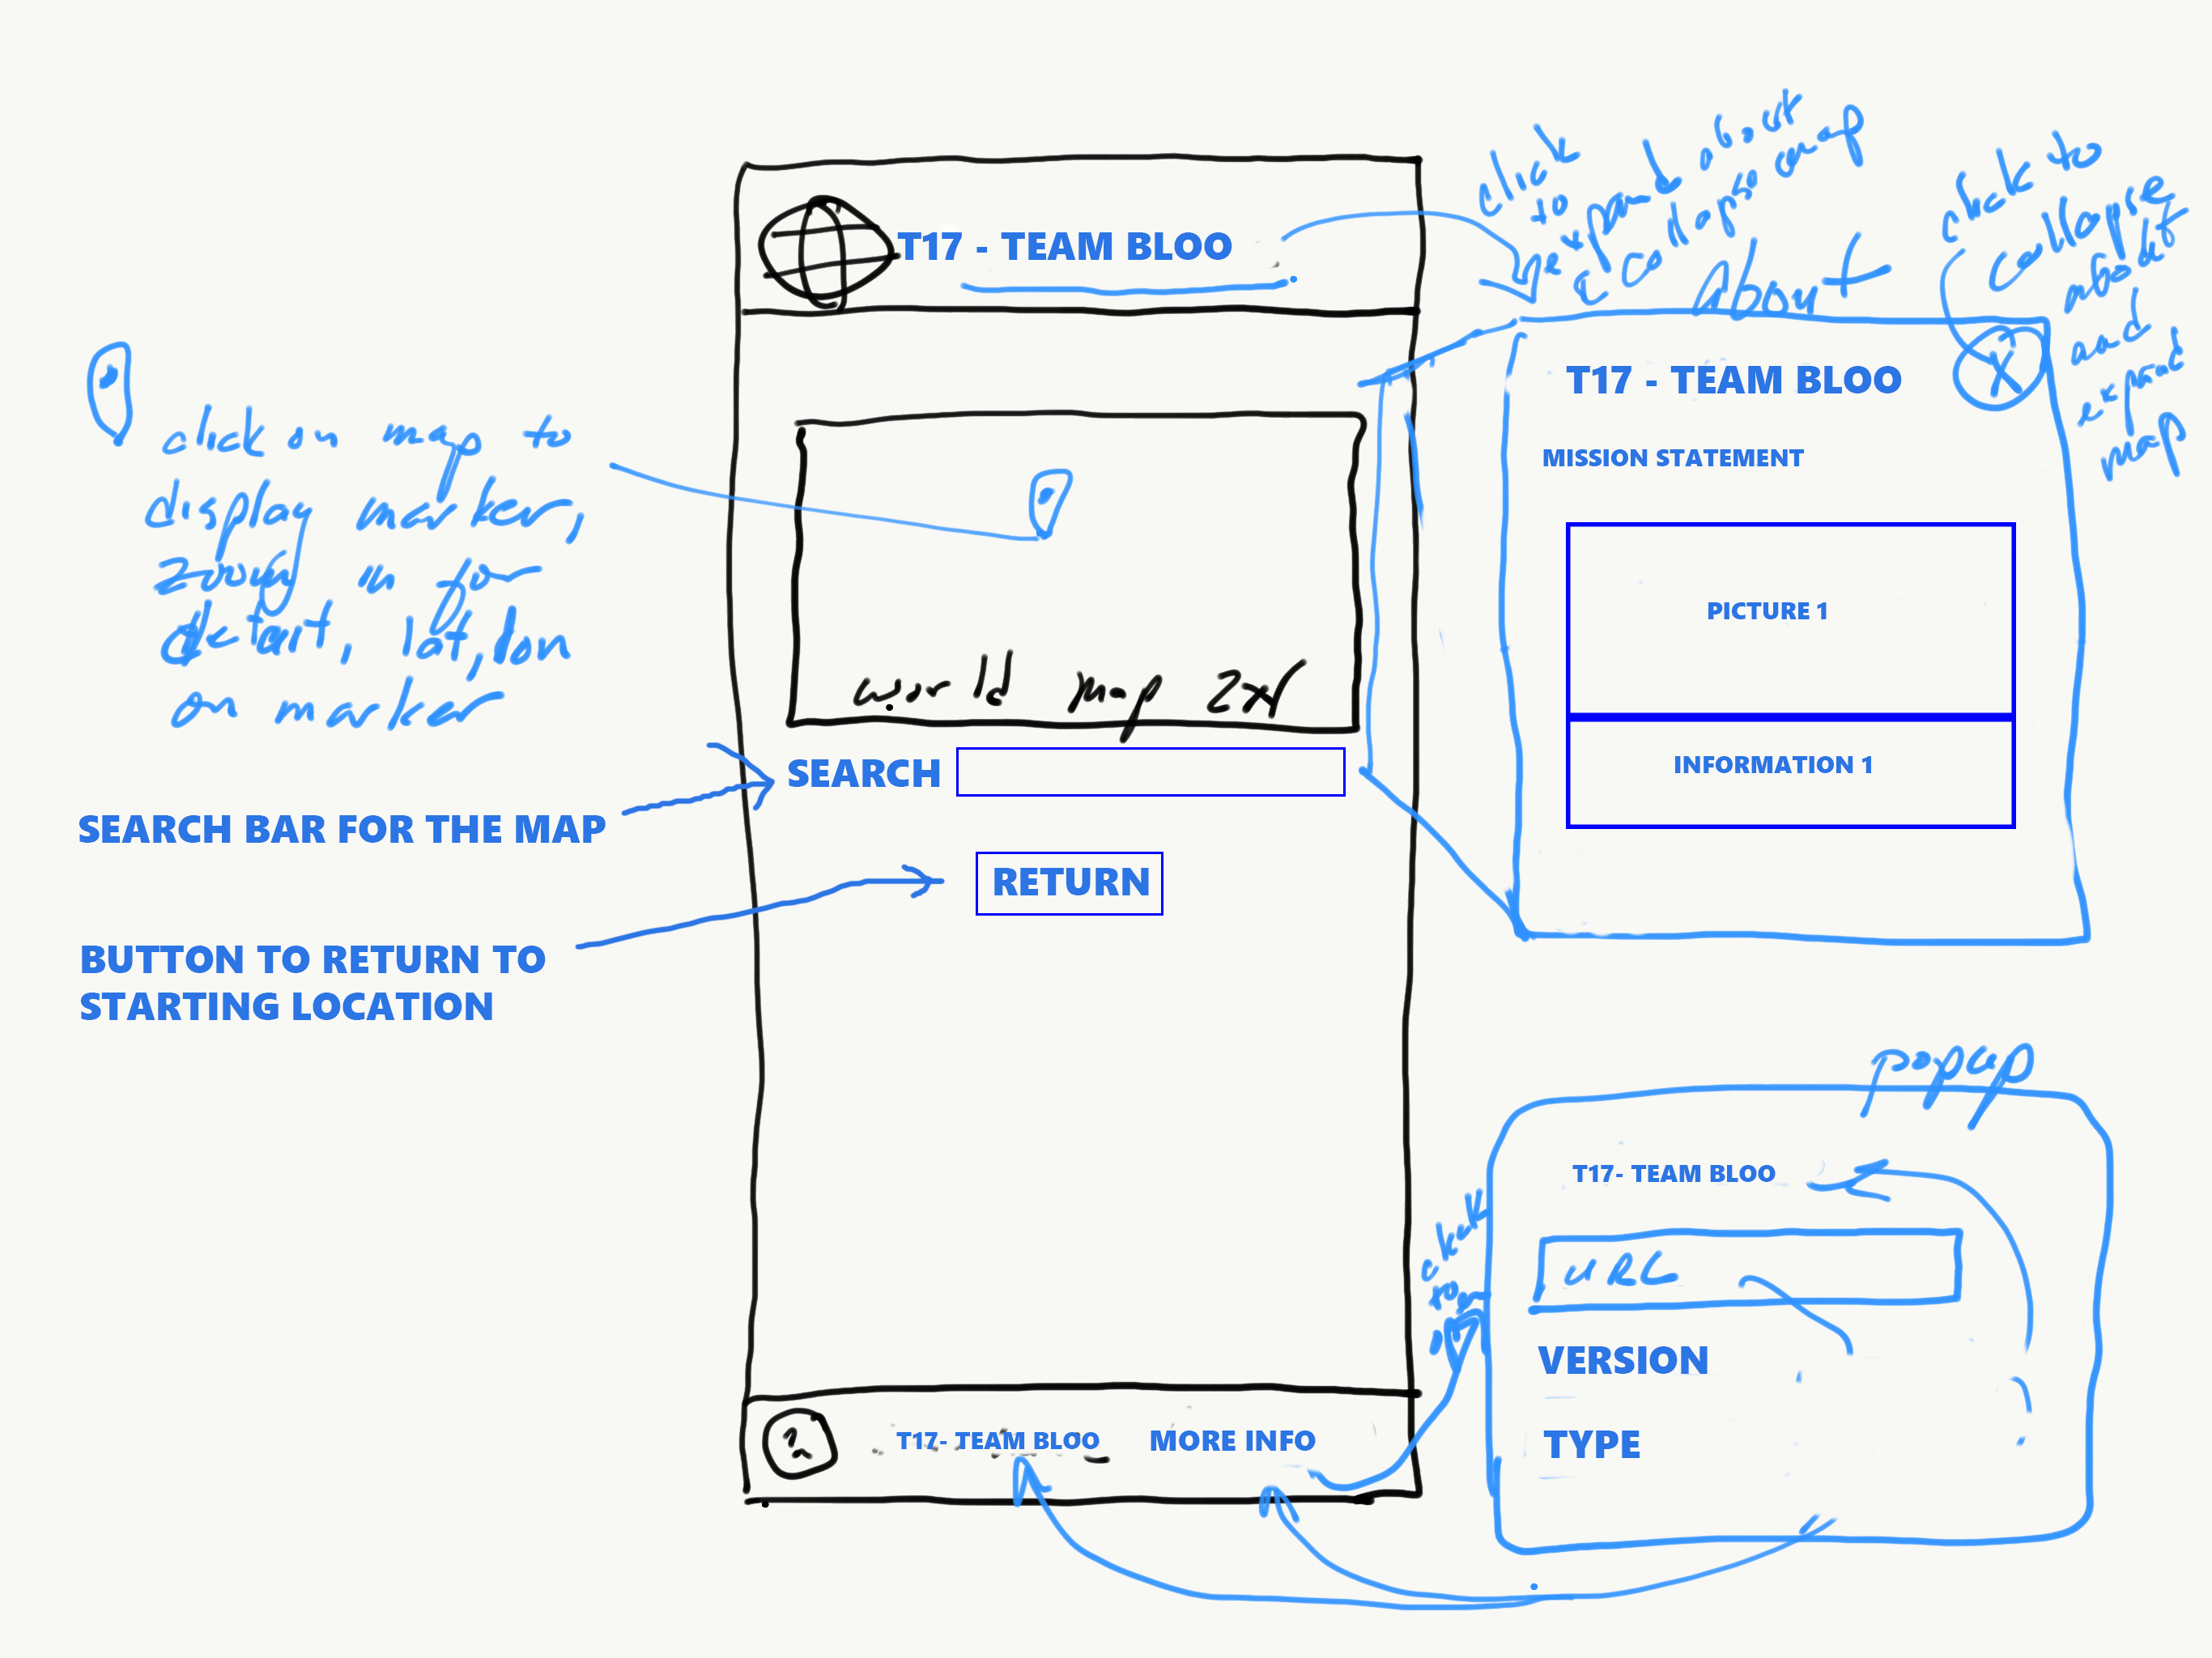 T17 - TEAM BLOO
click on map to
display marker,
zoom in for
detail, lat, lon
on marker
world map 2x1
SEARCH
SEARCH BAR FOR THE MAP
RETURN
BUTTON TO RETURN TO
STARTING LOCATION
T17- TEAM BLOO
MORE INFO
click
to
expand about
& collapse map
click to
collapse
about
and
expand
map
About
T17 - TEAM BLOO
X
MISSION STATEMENT
PICTURE 1
INFORMATION 1
popup
click
to
T17- TEAM BLOO
URL
VERSION
TYPE